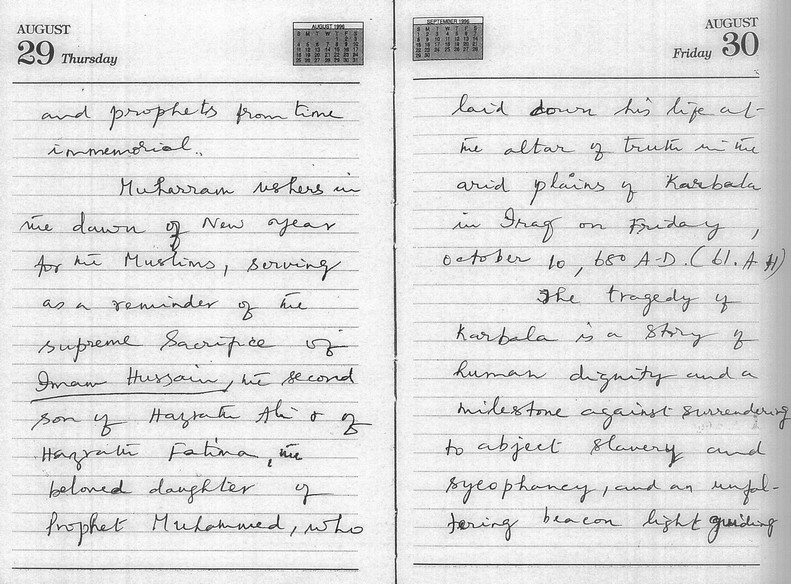 AUGUST
29 Thursday
AUGUST 1996
and prophets from time
immemorial..
Muharram ushers in
the dawn of New year
for the Muslims, serving
as a reminder of the
supreme Sacrifice of
Imam Hussain, the second
son of Hazrath Ali & of
Hazrath Fatima, the
beloved daughter of
Prophet Muhammed, who
SEPTEMBER 1996
AUGUST
Friday 30
laid down his life at
the altar of truth in the
arid plains of Karbala
in Iraq on Friday,
October 10, 680 A-D. (61. A H)
The tragedy of
Karbala is a story of
human dignity and a
milestone against surrendering
to abject slavery and
sycophancy, and an unfal-
tering beacon light guiding